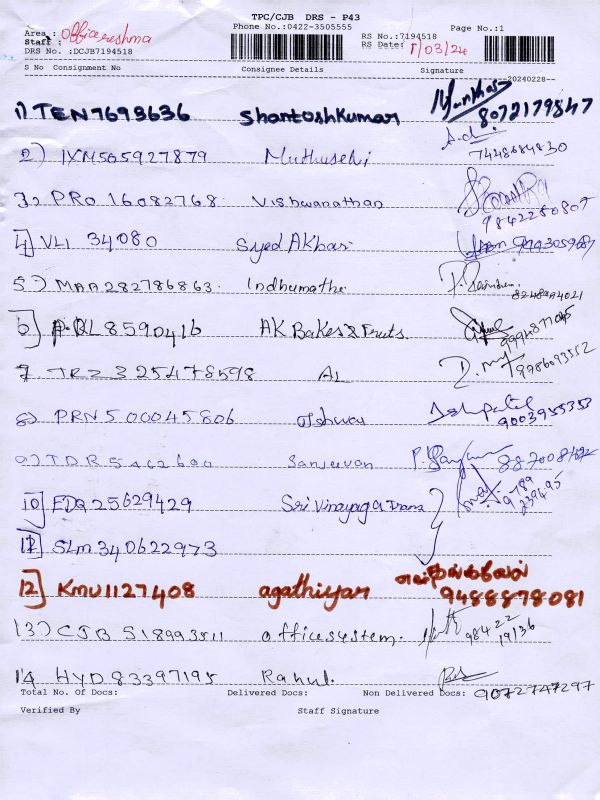 TPC/CJB DRS - P43
Phone No.:0422-3505555 Page No.:1
Area :
Staff :
RS No.:7194518
DRS No. :DCJB7194518 RS Date: 1/03/24
S No Consignment No Consignee Details Signature
20240228
1) TEN7693636 Shantoshkumar 8072179847
2) IXM565927879 Muthuselvi 7448684830
3) PRO 16082768 Vishwanathan 9842250807
4] VLI 34080 Syed Akbar
5) MAA282786863 Indhumathi 8248994021
6] BL8590416 AK Bakes & Fruts.
7. TRZ325478598 AL 9786093552
8) PRN500045806 9003955353
9) TDR5462690 Sanjeevan
10] EDQ25629429 Sri Vinayaga Trans 9789 239495
11] SLM340622973
12] KMU1127408 agathiyan 9488878081
13) CJB518993511 office system. 98422 19136
14 HYD83397195 Rahul. 9072747297
Total No. Of Docs: Delivered Docs: Non Delivered Docs:
Verified By Staff Signature